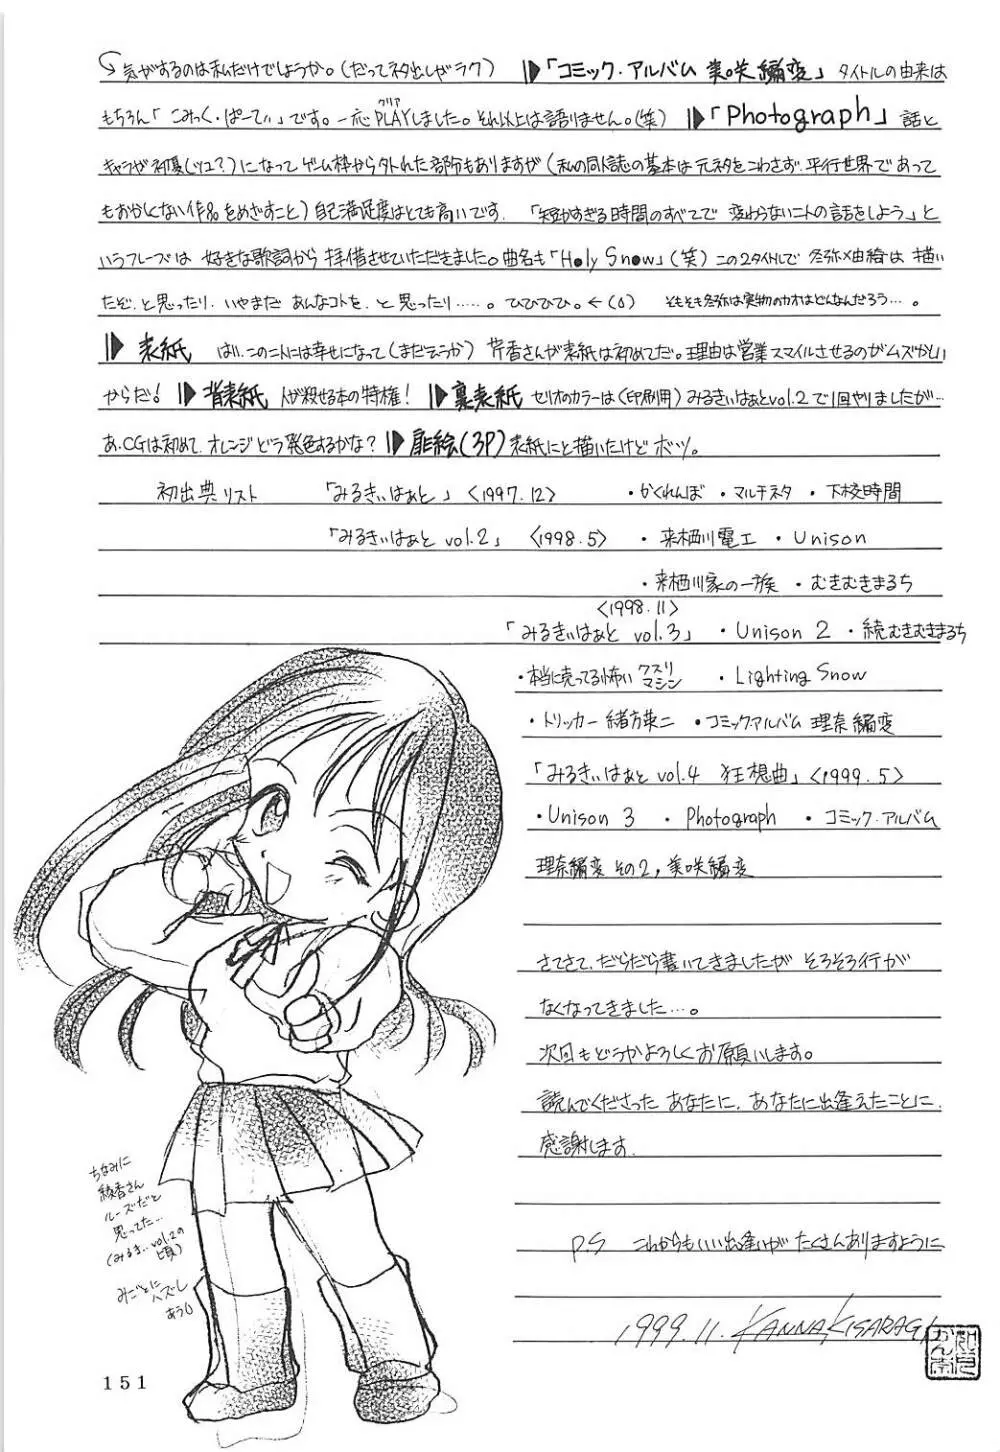 気がするのは私だけでしょうか。(だってネタ出しがラク) 「コミック・アルバム 美咲編変」タイトルの由来は
もちろん「こみっく・ぱーてぃ」です。一応PLAYしました。それ以上は語りません。(笑) 「Photograph」話と
クリア
キャラが初優(ツユ?)になってゲーム枠から外れた部分もありますが(私の同人誌の基本は元ネタをこわさず、平行世界であって
もおかしくない作品をめざすこと)自己満足度はとても高いです。「短かすぎる時間のすべてで 変わらない二人の話をしよう」と
いうフレーズは 好きな歌詞から拝借させていただきました。曲名も「Holy Snow」(笑)この2タイトルで 冬弥×由綺は描い
たぞ、と思ったり、いやまだ あんなコトを、と思ったり……。ひひひひ。← そもそも冬弥は実物のカオはどんなんだろう…。
表紙 はい、この二人には幸せになって(まだそうか) 芹香さんが表紙は初めてだ。理由は営業スマイルさせるのがムズかしい
からだ! 背表紙 人が殺せる本の特権! 裏表紙 セリオのカラーは(印刷用)みるきぃはぁとvol.2で1回やりましたが…
あ、CGは初めて、オレンジどう発色するかな? 扉絵(3P)表紙にと描いたけどボツ。
初出典リスト 「みるきぃはぁと」〈1997.12〉 ・かくれんぼ ・マルチネタ ・下校時間
「みるきぃはぁと vol.2」〈1998.5〉 ・来栖川電工 ・Unison
・来栖川家の一族 ・むきむきまるち
〈1998.11〉
「みるきぃはぁと vol.3」 ・Unison 2 ・続むきむきまるち
・本当に売ってる怖い クスリ マシン ・Lighting Snow
・トリッカー緒方英二 ・コミックアルバム 理奈編変
「みるきぃはぁと vol.4 狂想曲」〈1999.5〉
・Unison 3 ・Photograph ・コミック・アルバム
理奈編変 その2, 美咲編変
さてさて、だらだら書いてきましたが そろそろ行が
なくなってきました…。
次回もどうかよろしくお願いします。
読んでくださった あなたに、あなたに出逢えたことに、
感謝します。
P.S これからもいい出逢いが たくさんありますように
1999.11. KANNA KISARAGI
ちなみに
綾香さん
ルーズだと
思ってた…
(みるき..vol.2の頃)
みごとに
ハズし
あう
151